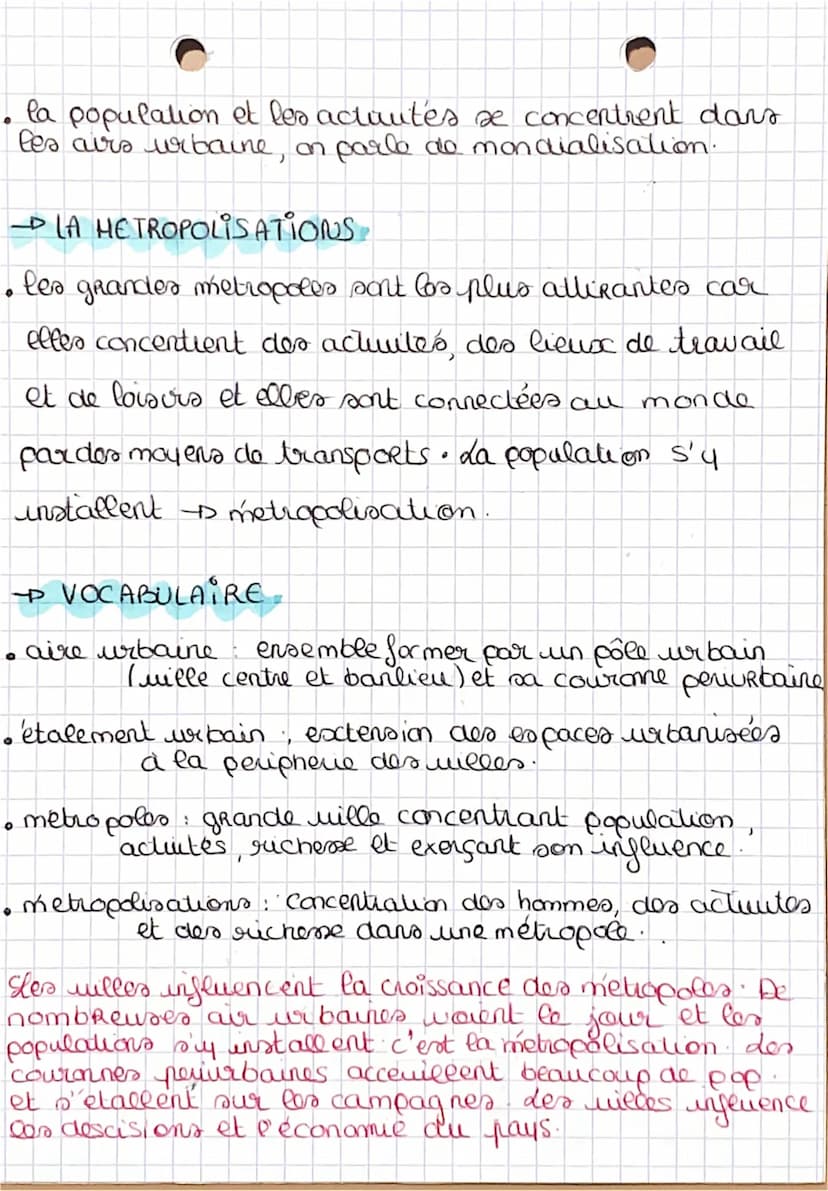 . la population et les activités se concentrent dans
les airs urbaine, on parle de mondialisation.
→ LA METROPOLiSATiONS
. les grandes métropoles sont les plus attirantes car
elles concentrent des activités, des lieux de travail
et de loisirs et elles sont connectées au monde
par des moyens de transports. La population s'y
installent → métropolisation.
→ VOCABULAiRE
. aire urbaine : ensemble former par un pôle urbain
(ville centre et banlieu) et sa couronne periurbaine
. étalement urbain : extension des espaces urbanisées
à la peripherie des villes.
. metropoles : grande ville concentrant population,
activités, richesse et exerçant son influence.
. metropolisations : concentration des hommes, des activites
et des richesse dans une métropole.
Les villes influencent la croissance des métropoles. De
nombreuses air urbaines voient le jour et les
populations s'y installent. c'est la métropolisation. des
couronnes periurbaines acceuillent beaucoup de pop.
et s'étallent sur les campagnes. des villes influence
les descisions et l'économie du pays.